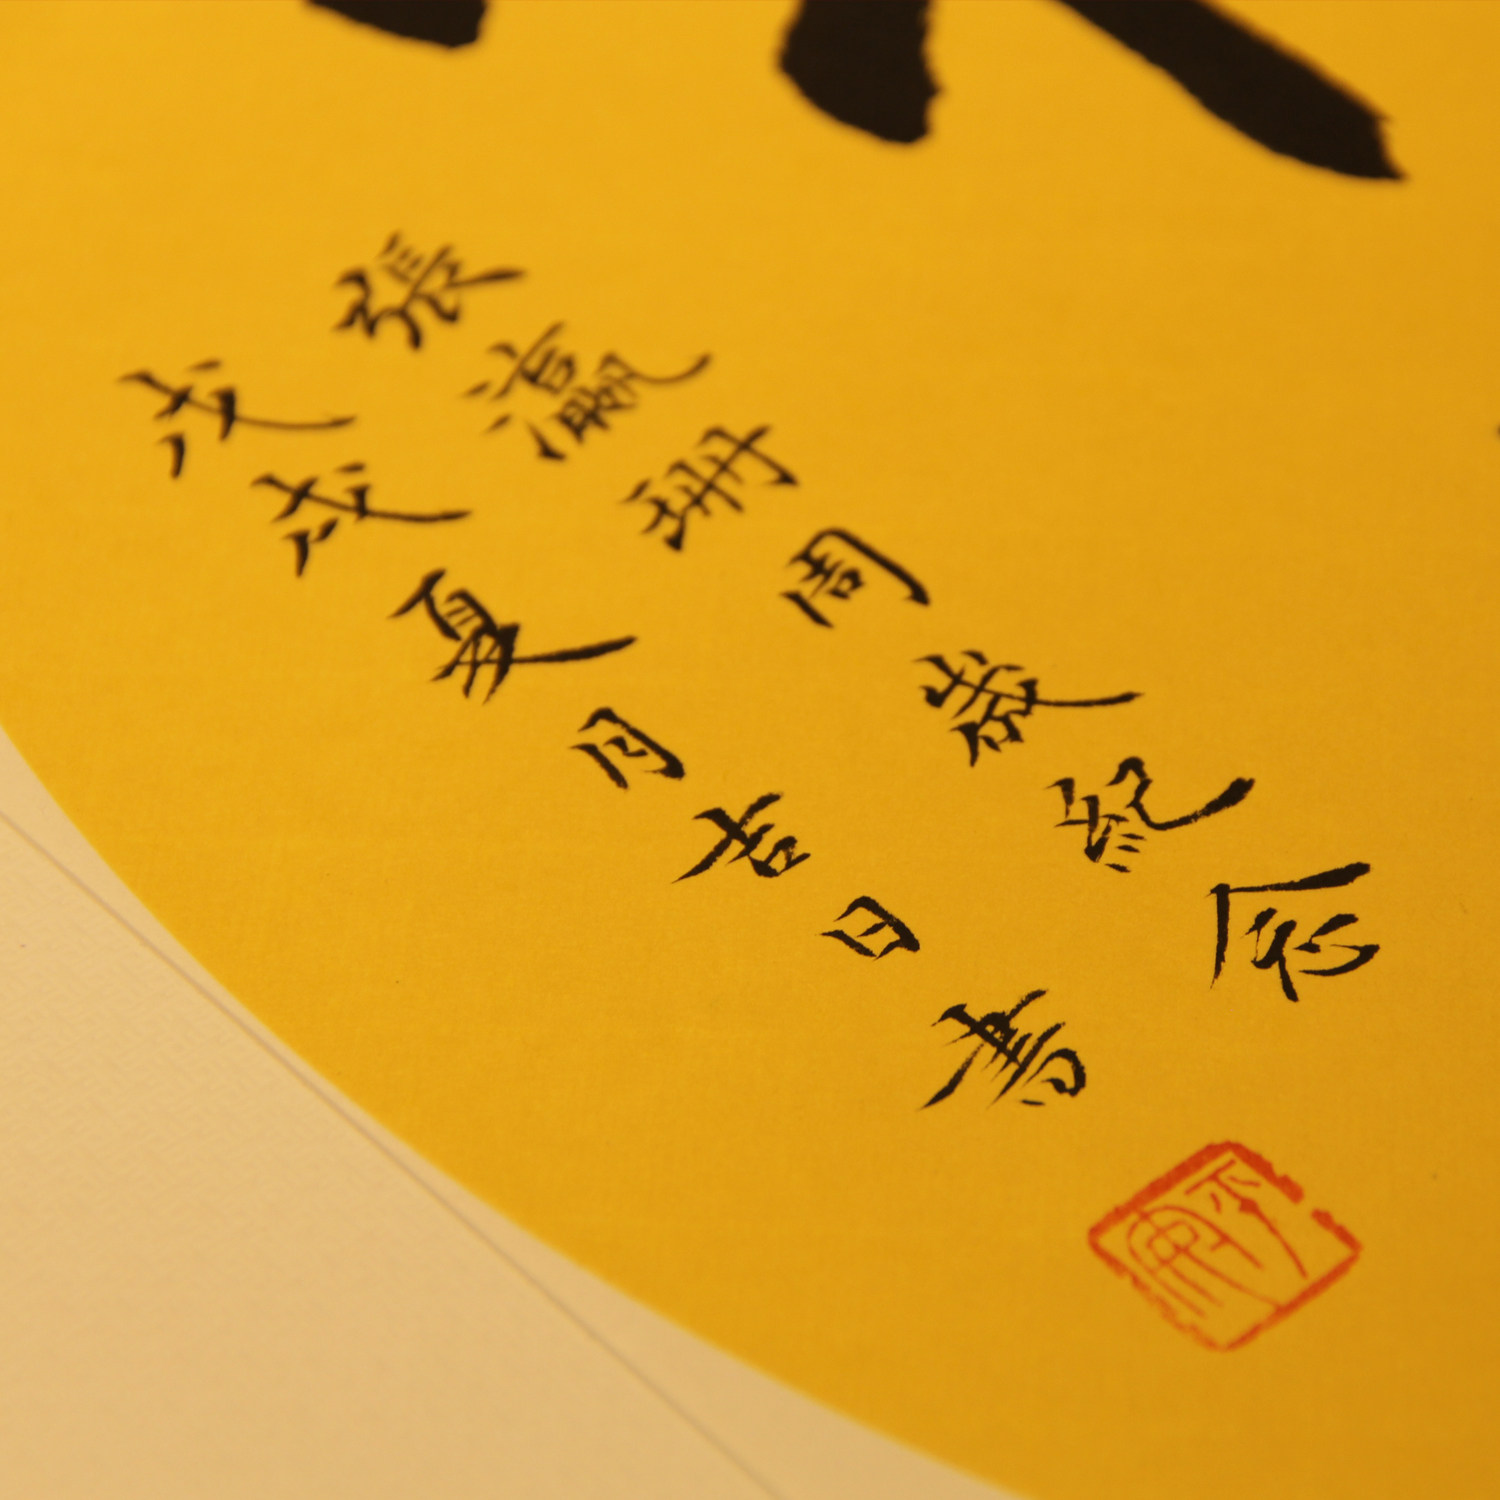 張瀛珊周歲紀念
戊戌夏月吉日書